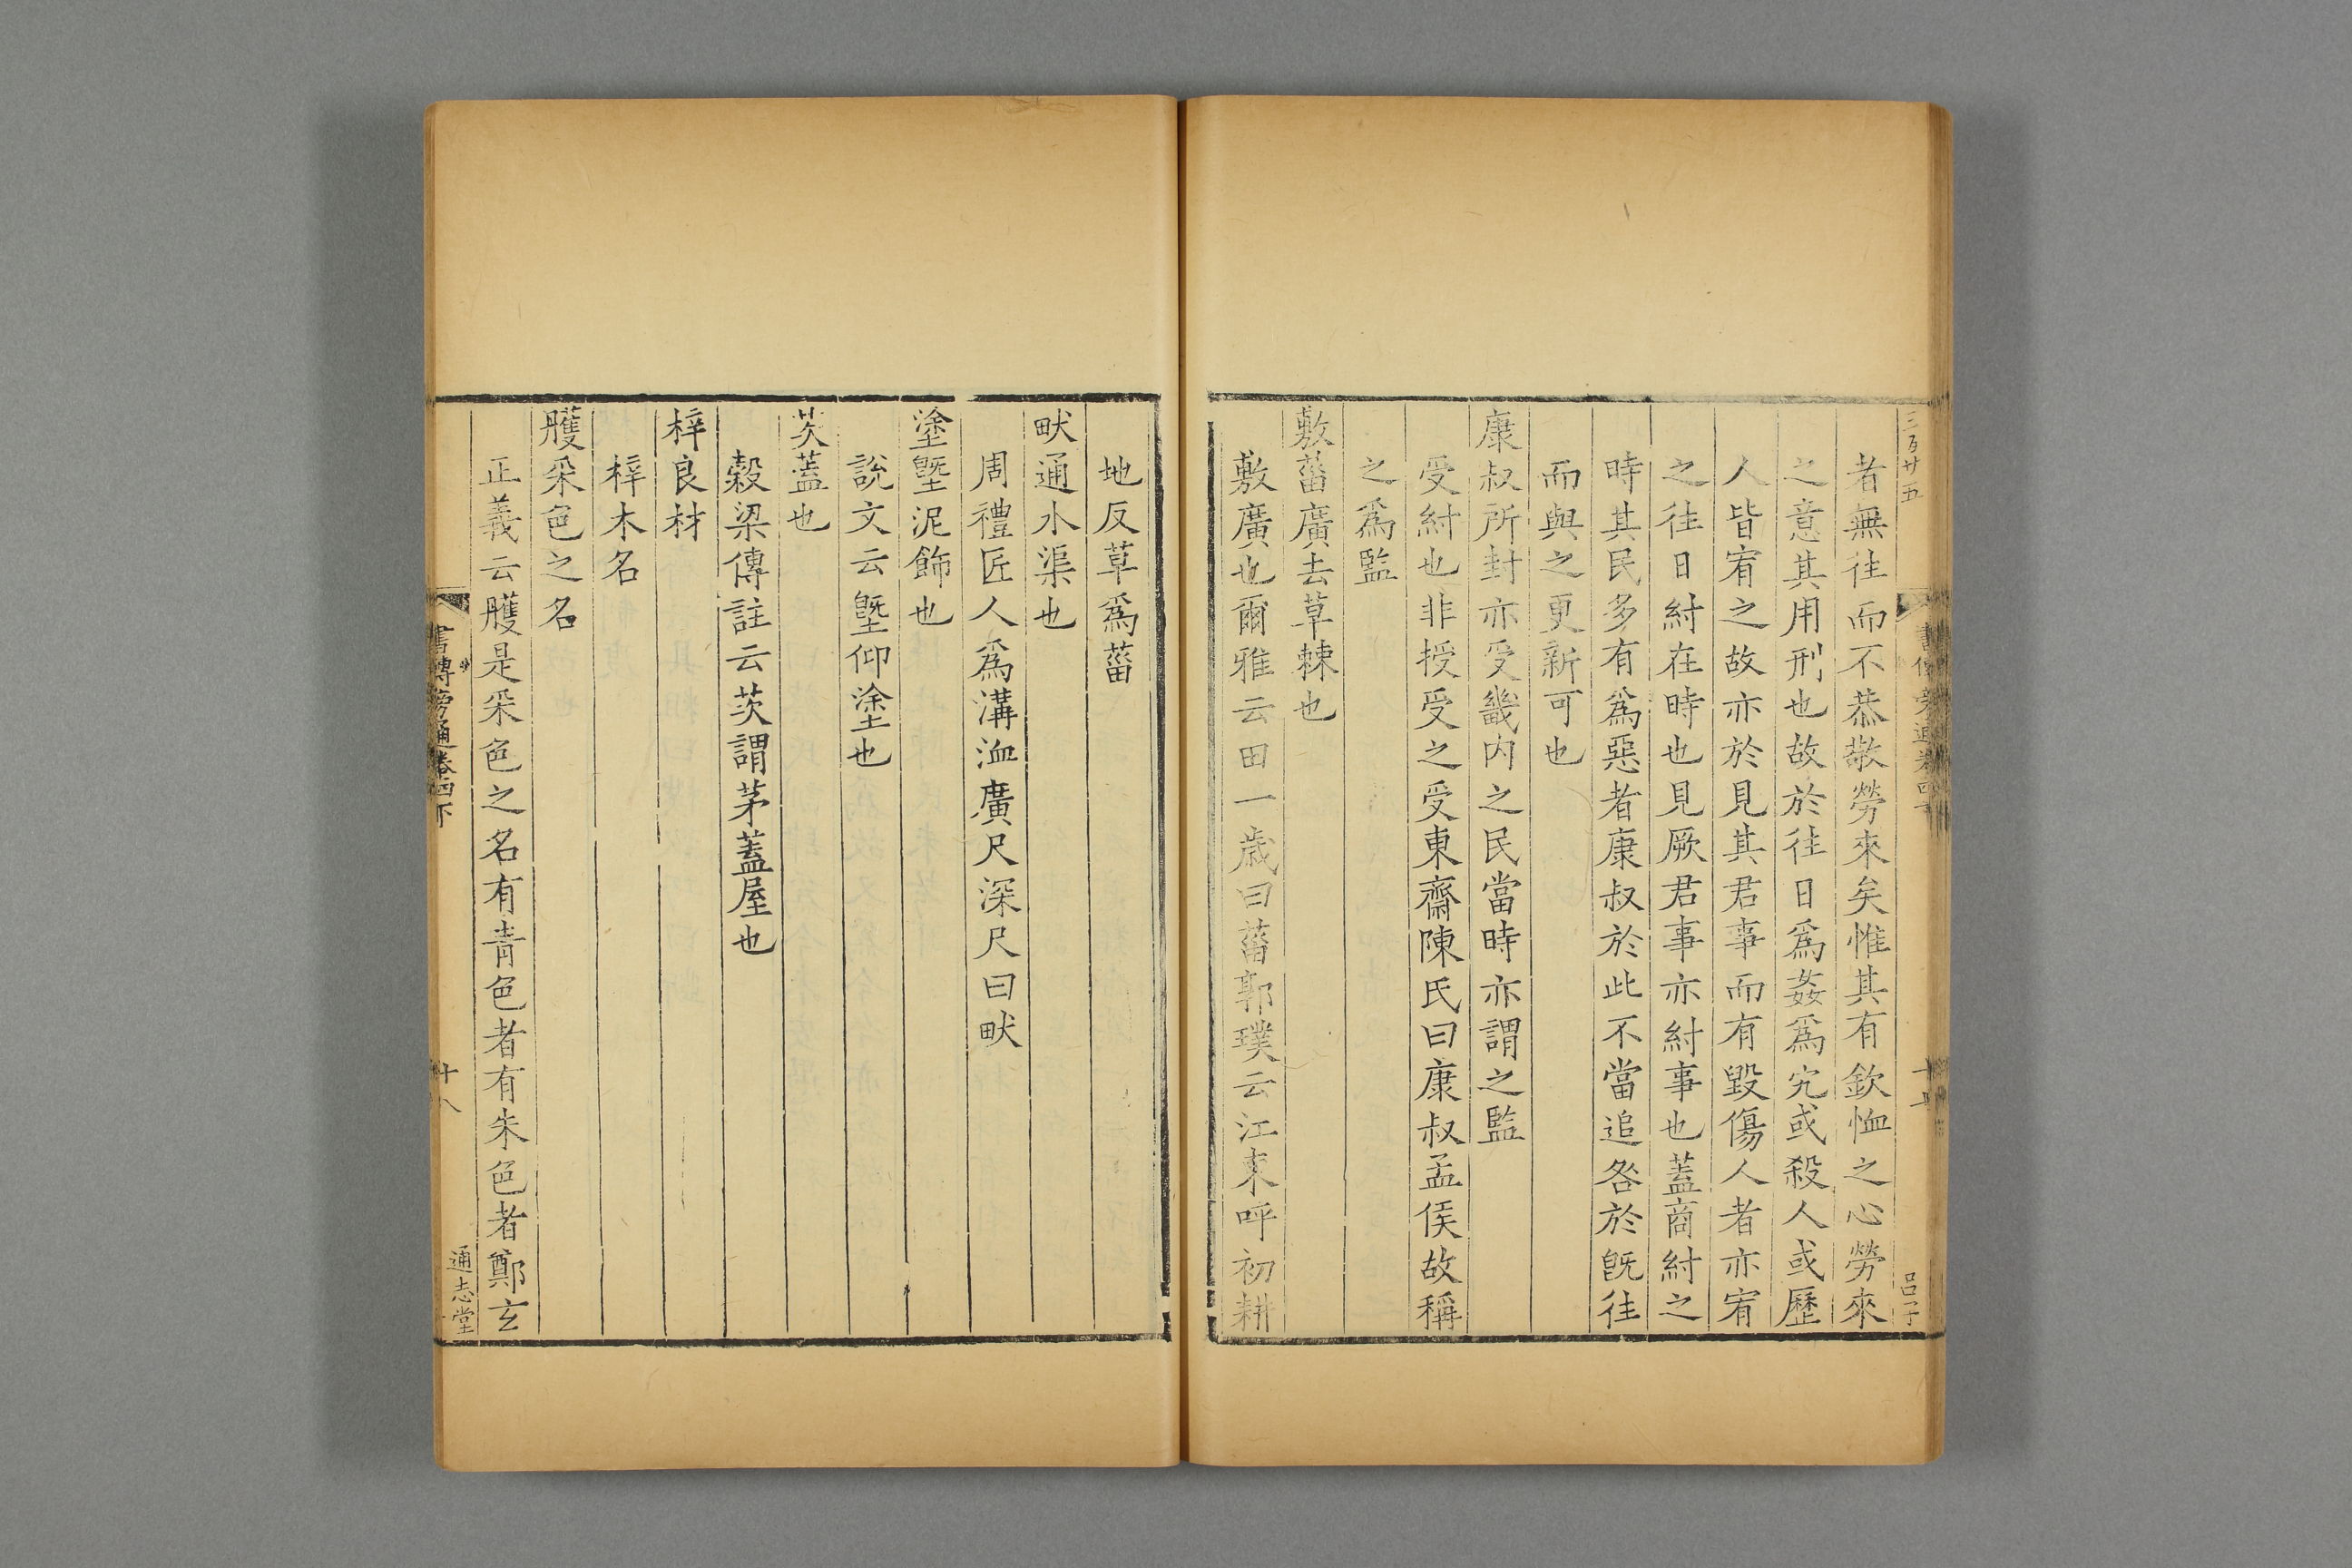 三百廿五
者無往而不恭敬勞來矣惟其有欽恤之心勞來
之意其用刑也故於往日爲姦爲宄或殺人或歷
人皆宥之故亦於見其君事而有毀傷人者亦宥
之往日紂在時也見厥君事亦紂事也蓋商紂之
時其民多有爲惡者康叔於此不當追咎於旣往
而與之更新可也
康叔所封亦受畿内之民當時亦謂之監
受紂也非授受之受東齋陳氏曰康叔孟侯故稱
之爲監
敷菑廣去草棘也
敷廣也爾雅云田一歲曰菑郭璞云江東呼初耕
地反草爲菑
畎通水渠也
周禮匠人爲溝洫廣尺深尺曰畎
塗塈泥飾也
說文云塈仰塗也
茨蓋也
榖梁傳註云茨謂茅蓋屋也
梓良材
梓木名
雘采色之名
正義云雘是采色之名有青色者有朱色者鄭玄
書傳旁通卷四下
十八
通志堂